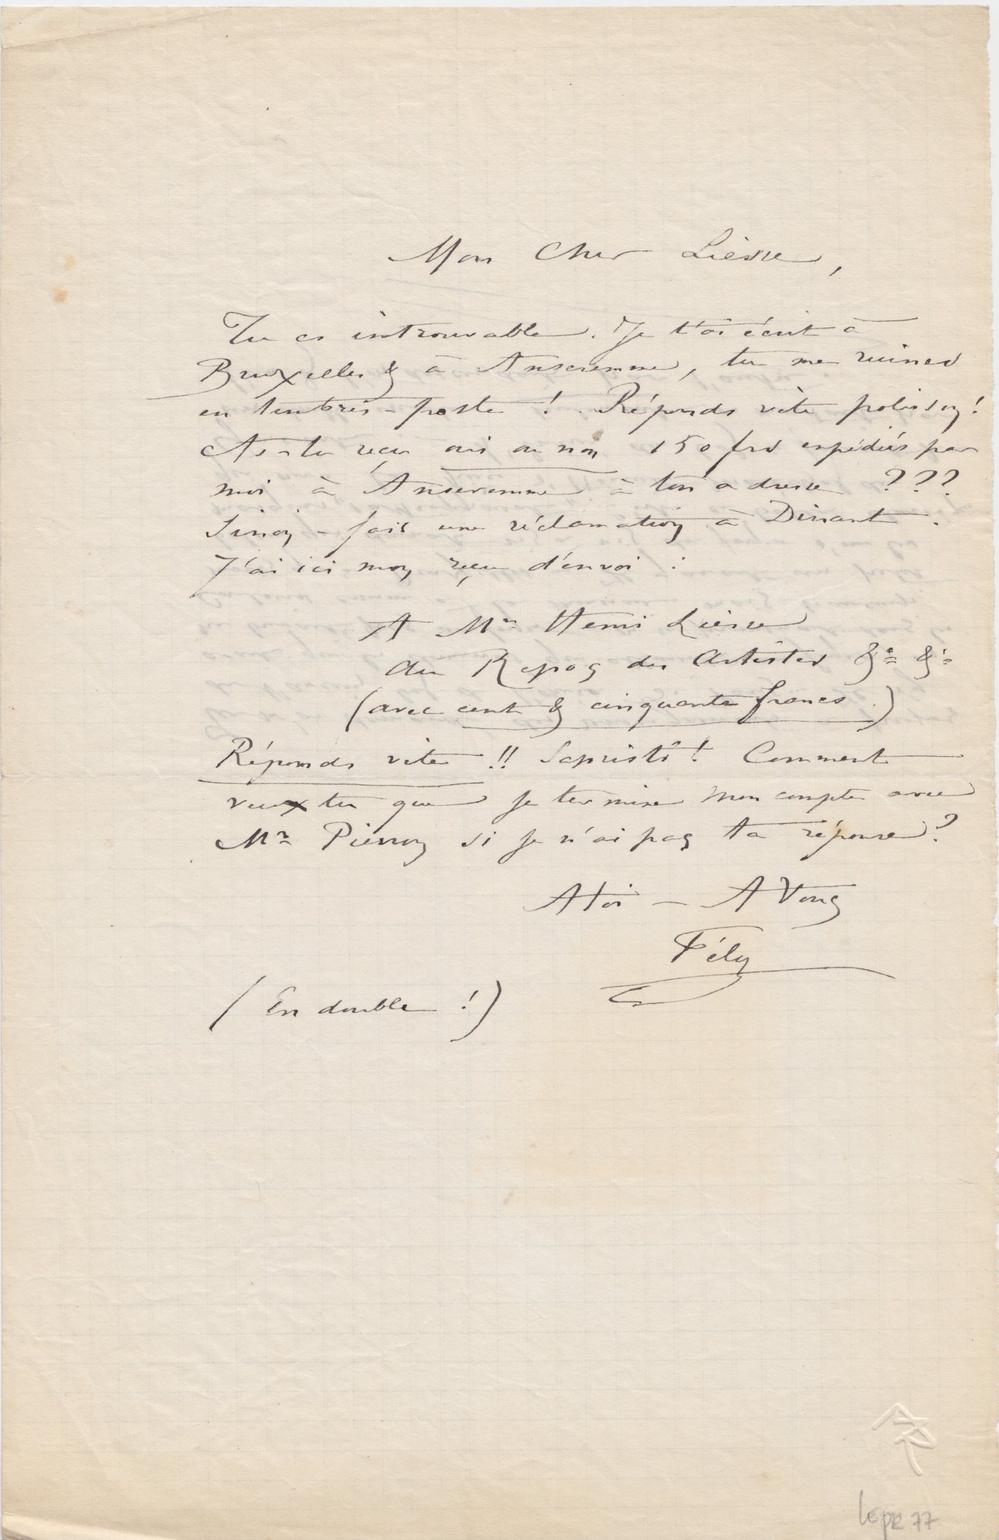 Mon Cher Liesse,
Tu es introuvable. Je t'ai écrit à
Bruxelles & à Anseremme, tu me ruines
en timbres-poste ! Réponds vite polisson !
As-tu reçu oui ou non 150 frs expédiés par
moi à Anseremme à ton adresse ???
Sinon - fais une réclamation à Dinant.
J'ai ici mon reçu d'envoi :
A Mr Henri Liesse
au Repos des Artistes &a &a
(avec cent & cinquante francs.)
Réponds vite !! Sapristi ! Comment
veux tu que je termine mon compte avec
Mr Pierron si je n'ai pas ta réponse ?
A toi — A Vous
Fély
(En double !)
lepr 77